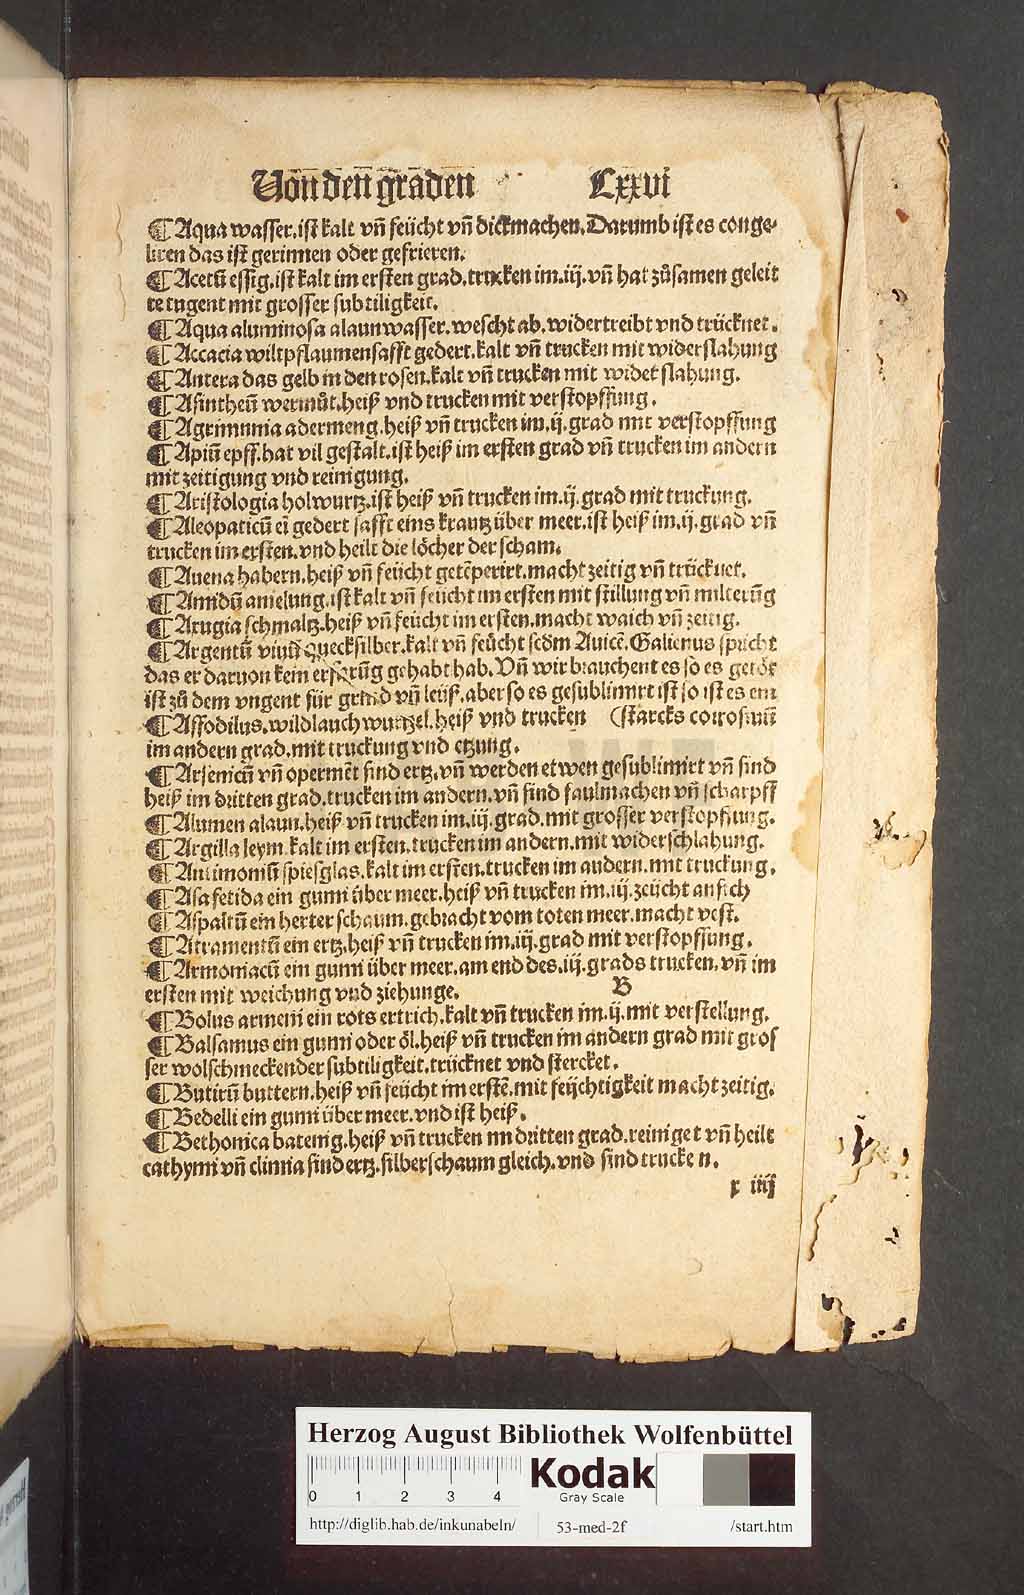 Von deñ gradeñ Lxxvi
¶ Aqua wasser.ist kalt vñ feücht vñ dickmachen. Darumb ist es conge-
liren das ist gerinnen oder gefrieren.
¶ Acetū essig.ist kalt im ersten grad.trucken im.iij.vñ hat zůsamen geleit
te tugent mit grosser subtiligkeit.
¶ Aqua aluminosa alaunwasser.wescht ab.widertreibt vnd trücknet.
¶ Accacia wiltpflaumensafft gedert.kalt vñ trucken mit widerslahung
¶ Antera das gelb in den rosen.kalt vñ trucken mit wider slahung.
¶ Asintheū wermůt.heiß vnd trucken mit verstopffung.
¶ Agrimunia adermeng.heiß vñ trucken im.ij.grad mit verstopffung
¶ Apiū epff.hat vil gestalt.ist heiß im ersten grad vñ trucken im andern
mit zeitigung vnd reinigung.
¶ Aristologia holwurtz.ist heiß vñ trucken im.ij.grad mit truckung.
¶ Aleopaticū ei gedert safft eins krautz über meer.ist heiß im.ij.grad vñ
trucken im ersten.vnd heilt die löcher der scham.
¶ Auena habern.heiß vñ feücht getēperirt.macht zeitig vñ trücknet.
¶ Amidū amelung.ist kalt vñ feücht im ersten mit stillung vñ milterūg
¶ Axugia schmaltz.heiß vñ feücht im ersten.macht waich vñ zeitig.
¶ Argentū viuū quecksilber.kalt vñ feücht scdm Auicē. Galienus spricht
das er daruon kein erfarūg gehabt hab. Vñ wir brauchent es so es getöt
ist zů dem vngent für grind vñ leüß.aber so es gesublimirt ist so ist es ein
¶ Affodilus.wildlauch wurtzel.heiß vnd trucken (starcks corrosiuū
im andern grad.mit truckung vnd etzung.
¶ Arsenicū vñ opermēt sind ertz.vñ werden etwen gesublimirt vñ sind
heiß im dritten grad.trucken im andern.vñ sind faulmachen vñ scharpff
¶ Alumen alaun.heiß vñ trucken im.iij.grad.mit grosser verstopffung.
¶ Argilla leym.kalt im ersten.trucken im andern.mit widerschlahung.
¶ Antimoniū spiesglas.kalt im ersten.trucken im andern.mit truckung.
¶ Asa fetida ein gumi über meer.heiß vñ trucken im.iij.zeücht an sich
¶ Aspaltū ein herter schaum.gebracht vom toten meer.macht vest.
¶ Atramentū ein ertz.heiß vñ trucken im.iij.grad mit verstopffung.
¶ Armoniacū ein gumi über meer.am end des.iij.grads trucken.vñ im
ersten mit weichung vnd ziehunge. B
¶ Bolus armeni ein rots ertrich.kalt vñ trucken im.ij.mit verstellung.
¶ Balsamus ein gumi oder öl.heiß vñ trucken im andern grad mit gros
ser wolschmeckender subtiligkeit.trücknet vnd stercket.
¶ Butirū buttern.heiß vñ feücht im erstē.mit feüchtigkeit macht zeitig.
¶ Bedelli ein gumi über meer.vnd ist heiß.
¶ Bethonica batenig.heiß vñ trucken im dritten grad.reiniget vñ heilt
cathymi vñ climia sind ertz.silberschaum gleich.vnd sind trucken.
x iiij
Herzog August Bibliothek Wolfenbüttel
0 1 2 3 4
Kodak
Gray Scale
http://diglib.hab.de/inkunabeln/ 53-med-2f /start.htm